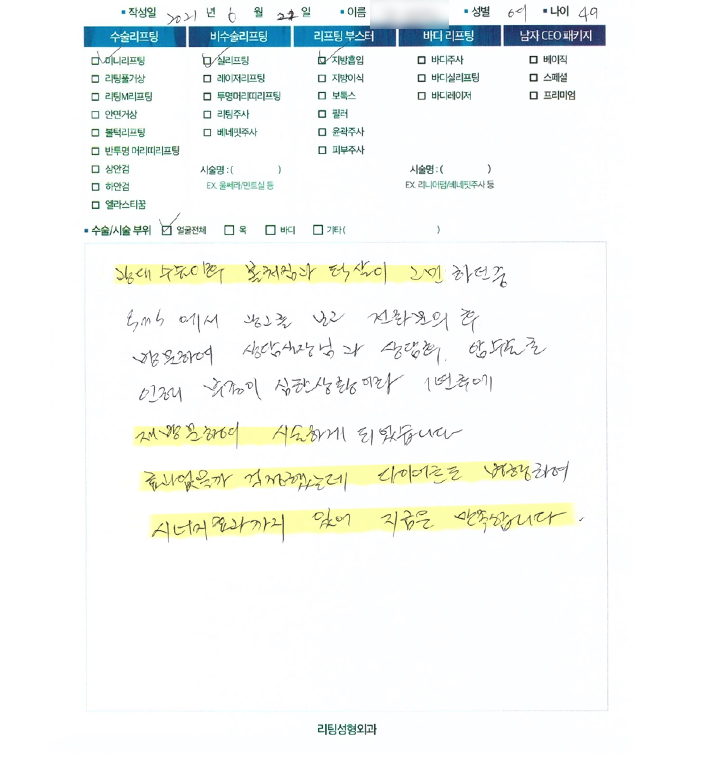 ▪ 작성일 2021 년 6 월 22 일 ▪ 이름 ▪ 성별 여 ▪ 나이 49
수술리프팅 비수술리프팅 리프팅 부스터 바디 리프팅 남자 CEO 패키지
미니리프팅 실리프팅 지방흡입 바디주사 베이직
리팅풀가상 레이저리프팅 지방이식 바디실리프팅 스페셜
리팅M리프팅 투명머리띠리프팅 보톡스 바디레이저 프리미엄
안면거상 리팅주사 필러
볼턱리프팅 베네핏주사 윤곽주사
반투명 머리띠리프팅 피부주사
상안검 시술명 : ( ) 시술명 : ( )
하안검 EX. 울쎄라/민트실 등 EX. 리니어펌/베네핏주사 등
엘라스티꿈
▪ 수술/시술 부위 얼굴전체 목 바디 기타 ( )
광대 수술이후 볼처짐과 턱살이 고민 하던중
에서 광고를 보고 전화문의 후
방문하여 상담실장님과 상담후,
인해 심한상황이라 1년후에
재방문하여 시술하게 되었습니다
효과없을까 걱정했는데 다이어트도 병행하여
시너지효과까지 있어 지금은 만족합니다.
리팅성형외과